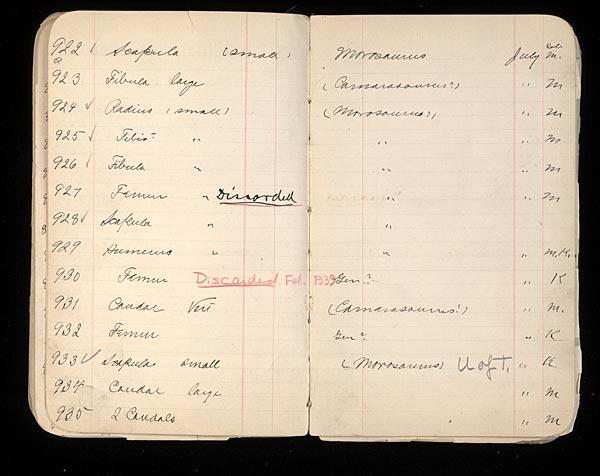 922 Scapula (small) Morosaurus July M.
923 Fibula large (Camarasaurus?) " M
924 ✓ Radius (small) (Morosaurus?) " M
925 ✓ Tibia " " " M
926 ✓ Fibula " " " M
927 Femur " Discarded " " M
928 ✓ Scapula " " "
929 Humerus " " " M.K.
930 Femur Discarded Feb. 1939 Gen? " K
931 Caudal Vert (Camarasaurus?) " M.
932 Femur Gen? " K
933 ✓ Scapula small (Morosaurus) U of T. " K
934 Caudal large " M
935 2 Caudals " M